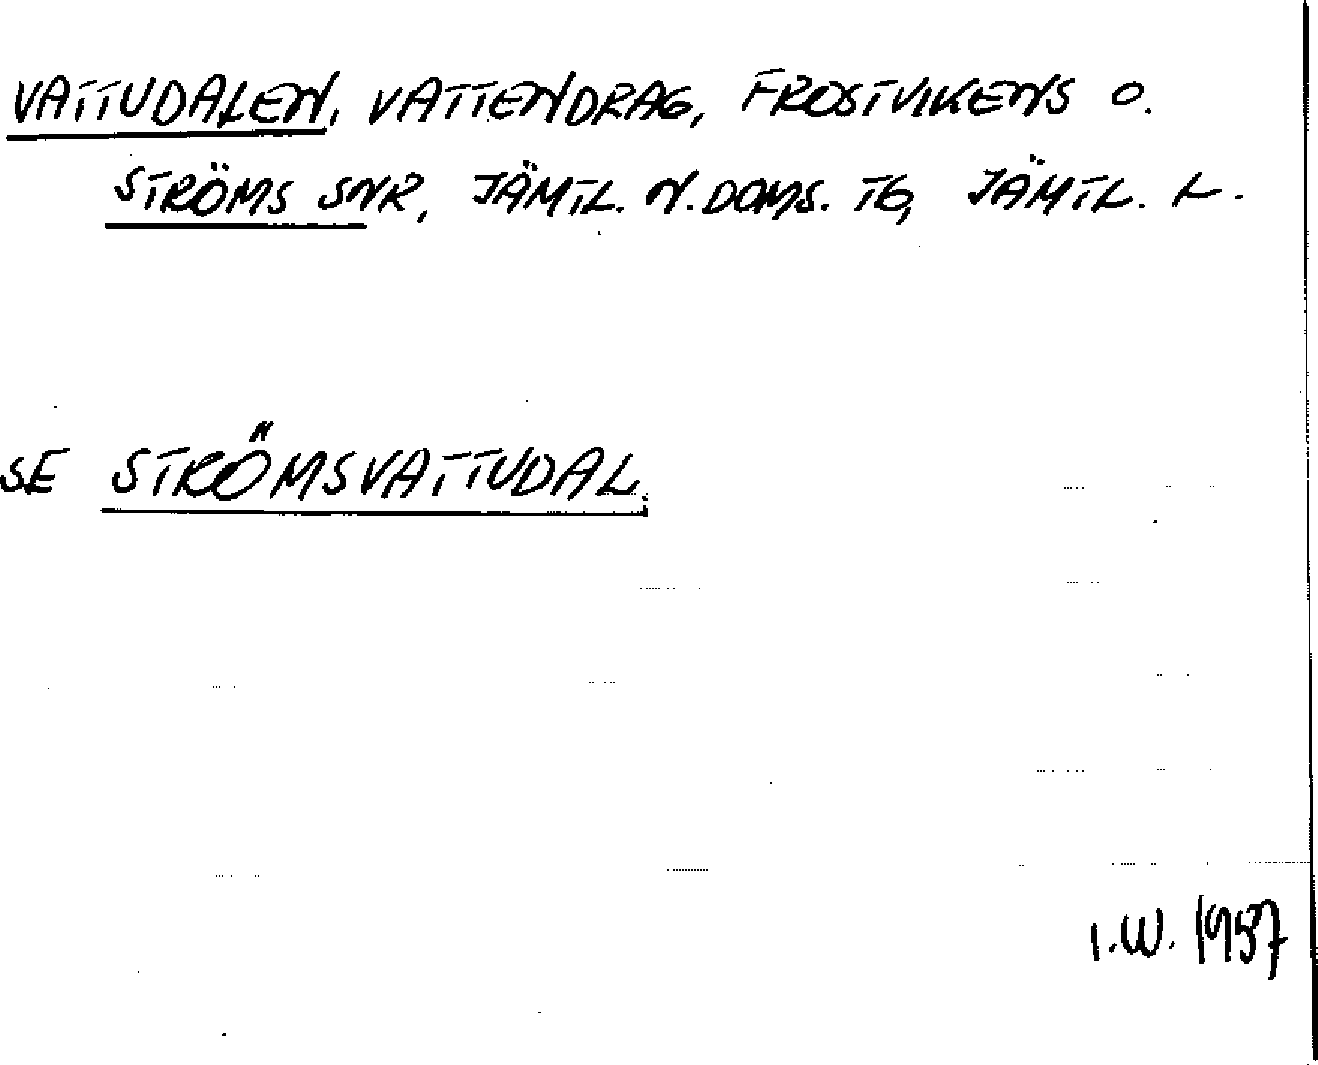 VATTUDALEN, VATTENDRAG, FROSTVIKENS O.
STRÖMS SNR, JÄMTL. N. DOMS. TG, JÄMTL. L.
SE STRÖMSVATTUDAL.
I.W. 1957